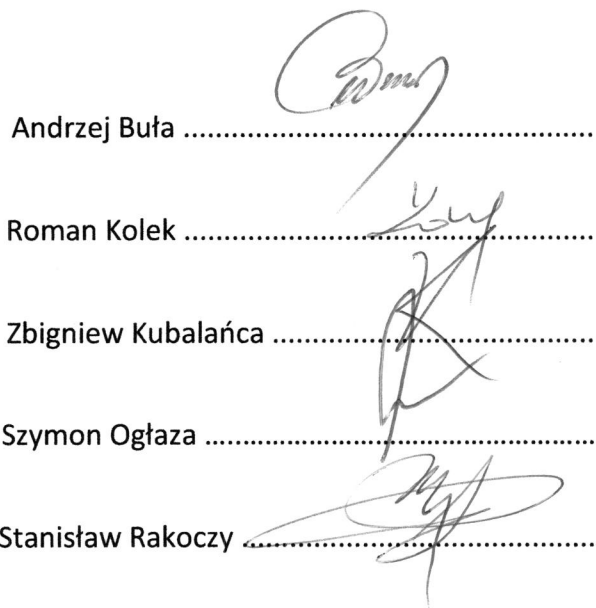 Andrzej Buła ..........................................................
Roman Kolek ..........................................................
Zbigniew Kubalańca .............................................
Szymon Ogłaza .......................................................
Stanisław Rakoczy .................................................